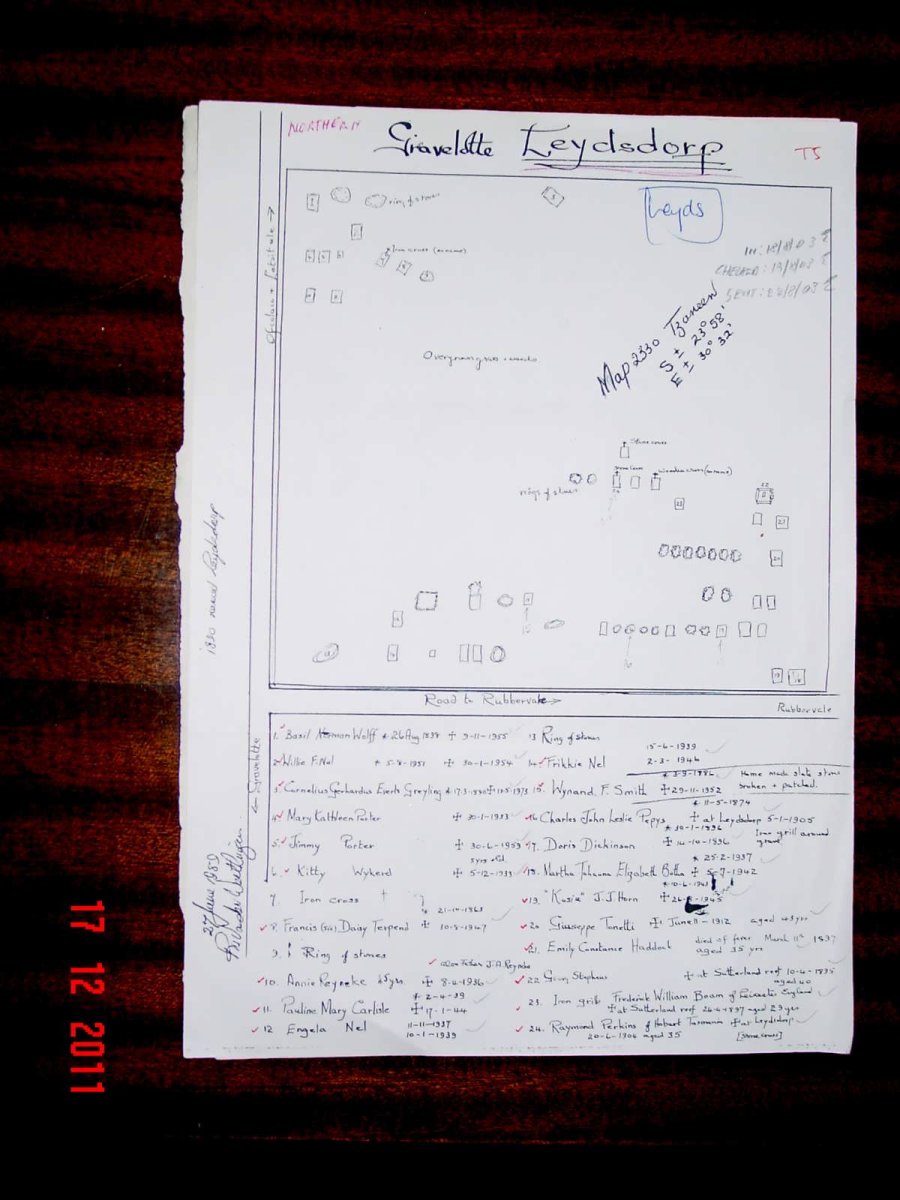 NORTHERN
Gravelotte Leydsdorp
T5
Leyds
IN: 18/8/03
CHECKED: 19/8/03
SENT: 22/8/03
Map 2330 Tzaneen
S ± 23° 58'
E ± 30° 32'
ring of stones
Iron cross (no name)
Overgrown grass + weeds
Stone cross
Stone cross
Wooden cross (no name)
rings of stones
1890 named Leydsdorp
← Gravelotte
27 June 1980
Road to Rubbervale →
Rubbervale
1. Basil Norman Wolff * 26 Aug 1898 ✝ 9-11-1955
2. Willie F. Nel * 5-8-1951 ✝ 30-1-1954
3. Cornelius Gerhardus Everts Greyling
4. Mary Kathleen Porter ✝ 30-1-1953
5. Jimmy Porter ✝ 30-6-1959
5yrs old
6. Kitty Wykerd ✝ 5-12-1933
7. Iron cross †
* 21-10-1863
8. Francis Daisy Terpend 10-8-1947
9. Ring of stones
also Father J.A Reyneke
10. Annie Reyneke ✝ 8-4-1936
* 2-4-39
11. Pauline Mary Carlisle ✝ 17-1-44
12 Engela Nel 11-11-1937
10-1-1939
13 Ring of stones
15-4-1939
14. Frikkie Nel 2-3-1946
* 3-9-1886
15. Wynand. F. Smith ✝ 29-11-1952
Home made slate stone
broken + patched.
* 11-5-1874
16 Charles John Leslie Pepys ✝ at Leydsdorp 5-1-1905
* 30-1-1896
17. Doris Dickinson ✝ 14-10-1896
Iron grill around
grave
* 25-2-1937
18. Martha Johanna Elizabeth Botha ✝ 5-7-1942
19. "Kosie" J.J Horn
20 Giuseppe Tonetti ✝ June 11-1912 aged 43yr
21. Emily Constance Haddock died of fever March 11th 1897
aged 35 yrs
22 Stephens ✝ at Sutherland reef 10-4-1895
aged 40
23. Iron grib Frederick William Beam of Leicester England
✝ at Sutherland reef 26-4-1897 aged 29 yr
24. Raymond Perkins of Hobart Tasmania ✝ at Leydsdorp
20-6-1904 aged 35 [Stone cross]
17 12 2011